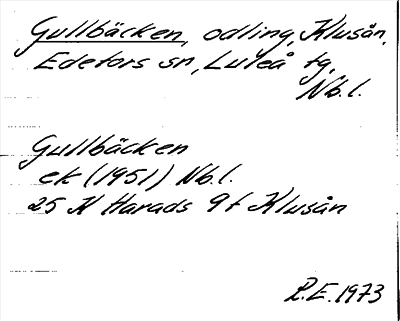 Gullbäcken, odling, Klusån,
Edefors sn, Luleå tg,
Nb.l.
Gullbäcken
ek (1951) Nb.l.
25 K Harads 9f Klusån
R.E. 1973